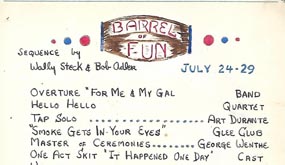 BARREL
OF
FUN
SEQUENCE by
Wally Steck & Bob Adler
JULY 24-29
OVERTURE "FOR ME & MY GAL BAND
HELLO HELLO QUARTET
TAP SOLO ........... ART DURANTE
"SMOKE GETS IN YOUR EYES" GLEE CLUB
MASTER OF CEREMONIES....... GEORGE WENTHE
ONE ACT SKIT "IT HAPPENED ONE DAY" CAST